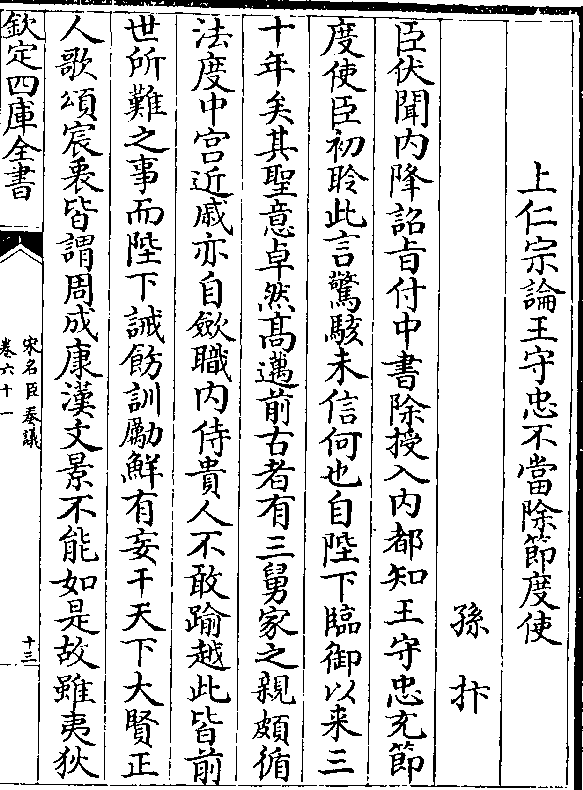 上仁宗論王守忠不當除節度使
孫抃
臣伏聞内降詔旨付中書除授入内都知王守忠充節
度使臣初聆此言驚駭未信何也自陛下臨御以来三
十年矣其聖意卓然髙邁前古者有三舅家之親頗循
法度中宫近戚亦自斂職内侍貴人不敢踰越此皆前
世所難之事而陛下誡飭訓勵鮮有妄干天下大賢正
人歌頌宸衷皆謂周成康漢文景不能如是故雖夷狄
欽定四庫全書
宋名臣奏議
卷六十一
十三